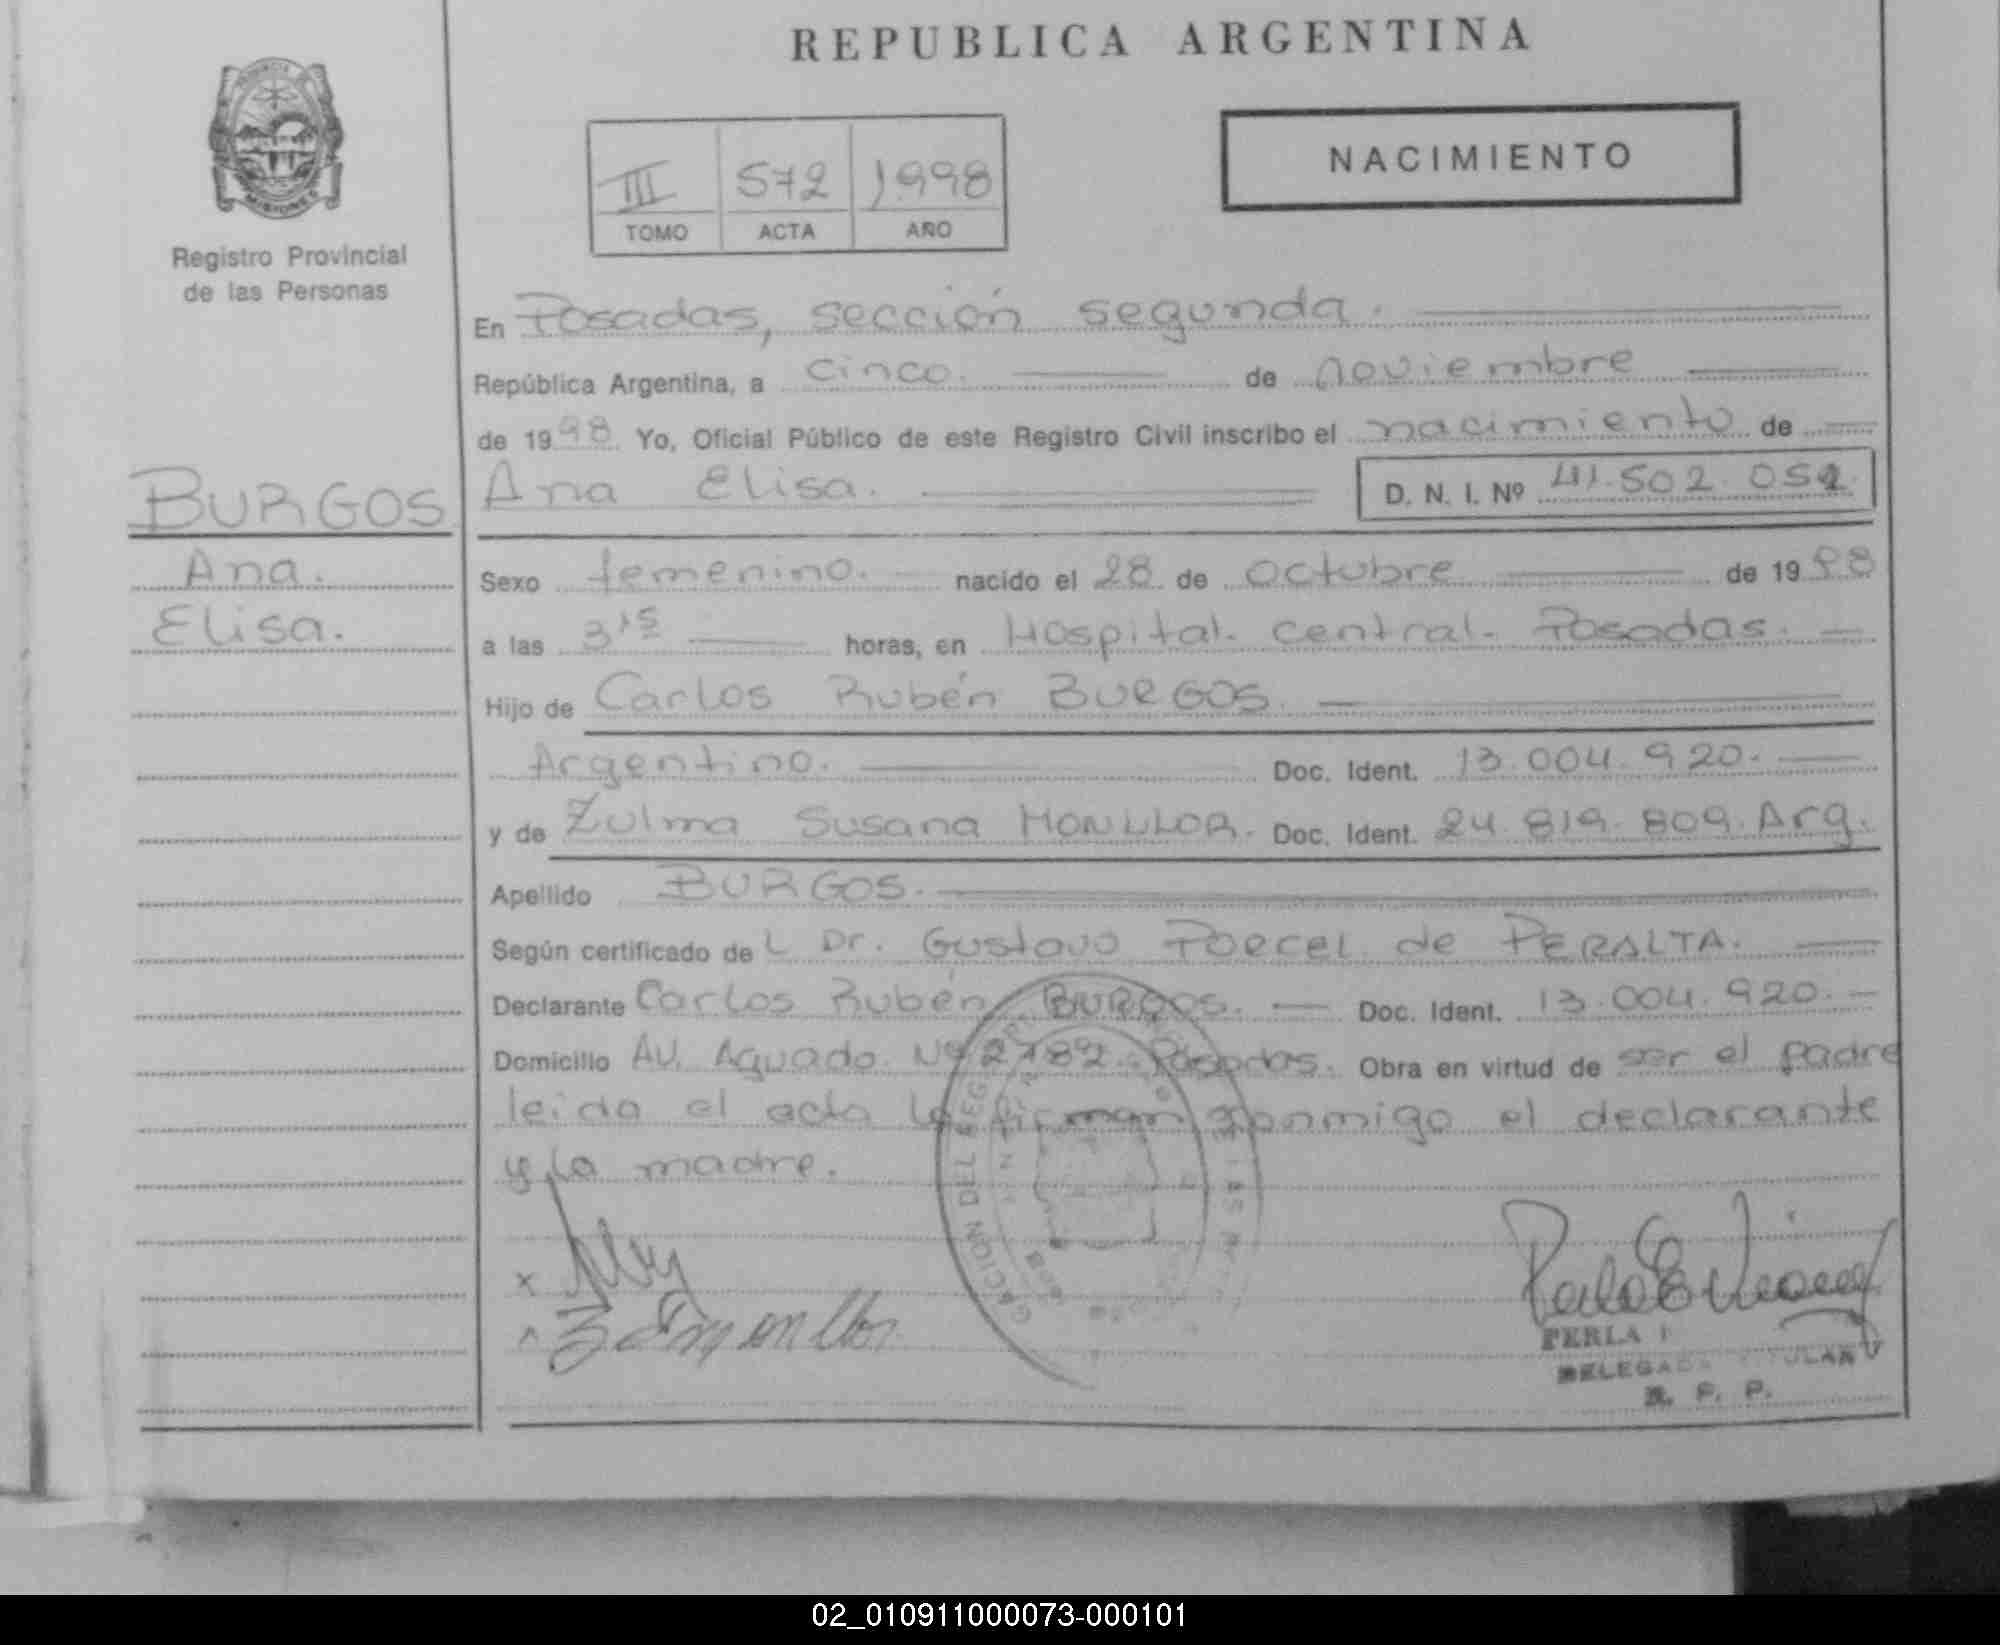 REPUBLICA ARGENTINA
NACIMIENTO
III 572 1998
TOMO ACTA AÑO
MISIONES
Registro Provincial
de las Personas
En Posadas, sección segunda.
República Argentina, a cinco. de noviembre
de 1998 Yo, Oficial Público de este Registro Civil inscribo el nacimiento de
BURGOS Ana Elisa. D. N. I. Nº 41.502.052
Ana.
Elisa.
Sexo femenino. nacido el 28 de octubre de 1998
a las 3 15 horas, en Hospital central. Posadas.
Hijo de Carlos Rubén BURGOS.
Argentino. Doc. Ident. 13.004.920.
y de Zulma Susana MONLLOR. Doc. Ident. 24.819.809. Arg.
Apellido BURGOS.
Según certificado del Dr. Gustavo Porcel de PERALTA.
Declarante Carlos Rubén BURGOS. Doc. Ident. 13.004.920.
Domicilio AV. Aguado Nº Posadas. Obra en virtud de ser el padre
leida el acta la firman conmigo el declarante
y la madre.
PERLA
DELEGADA TITULAR
R. P. P.
02_010911000073-000101